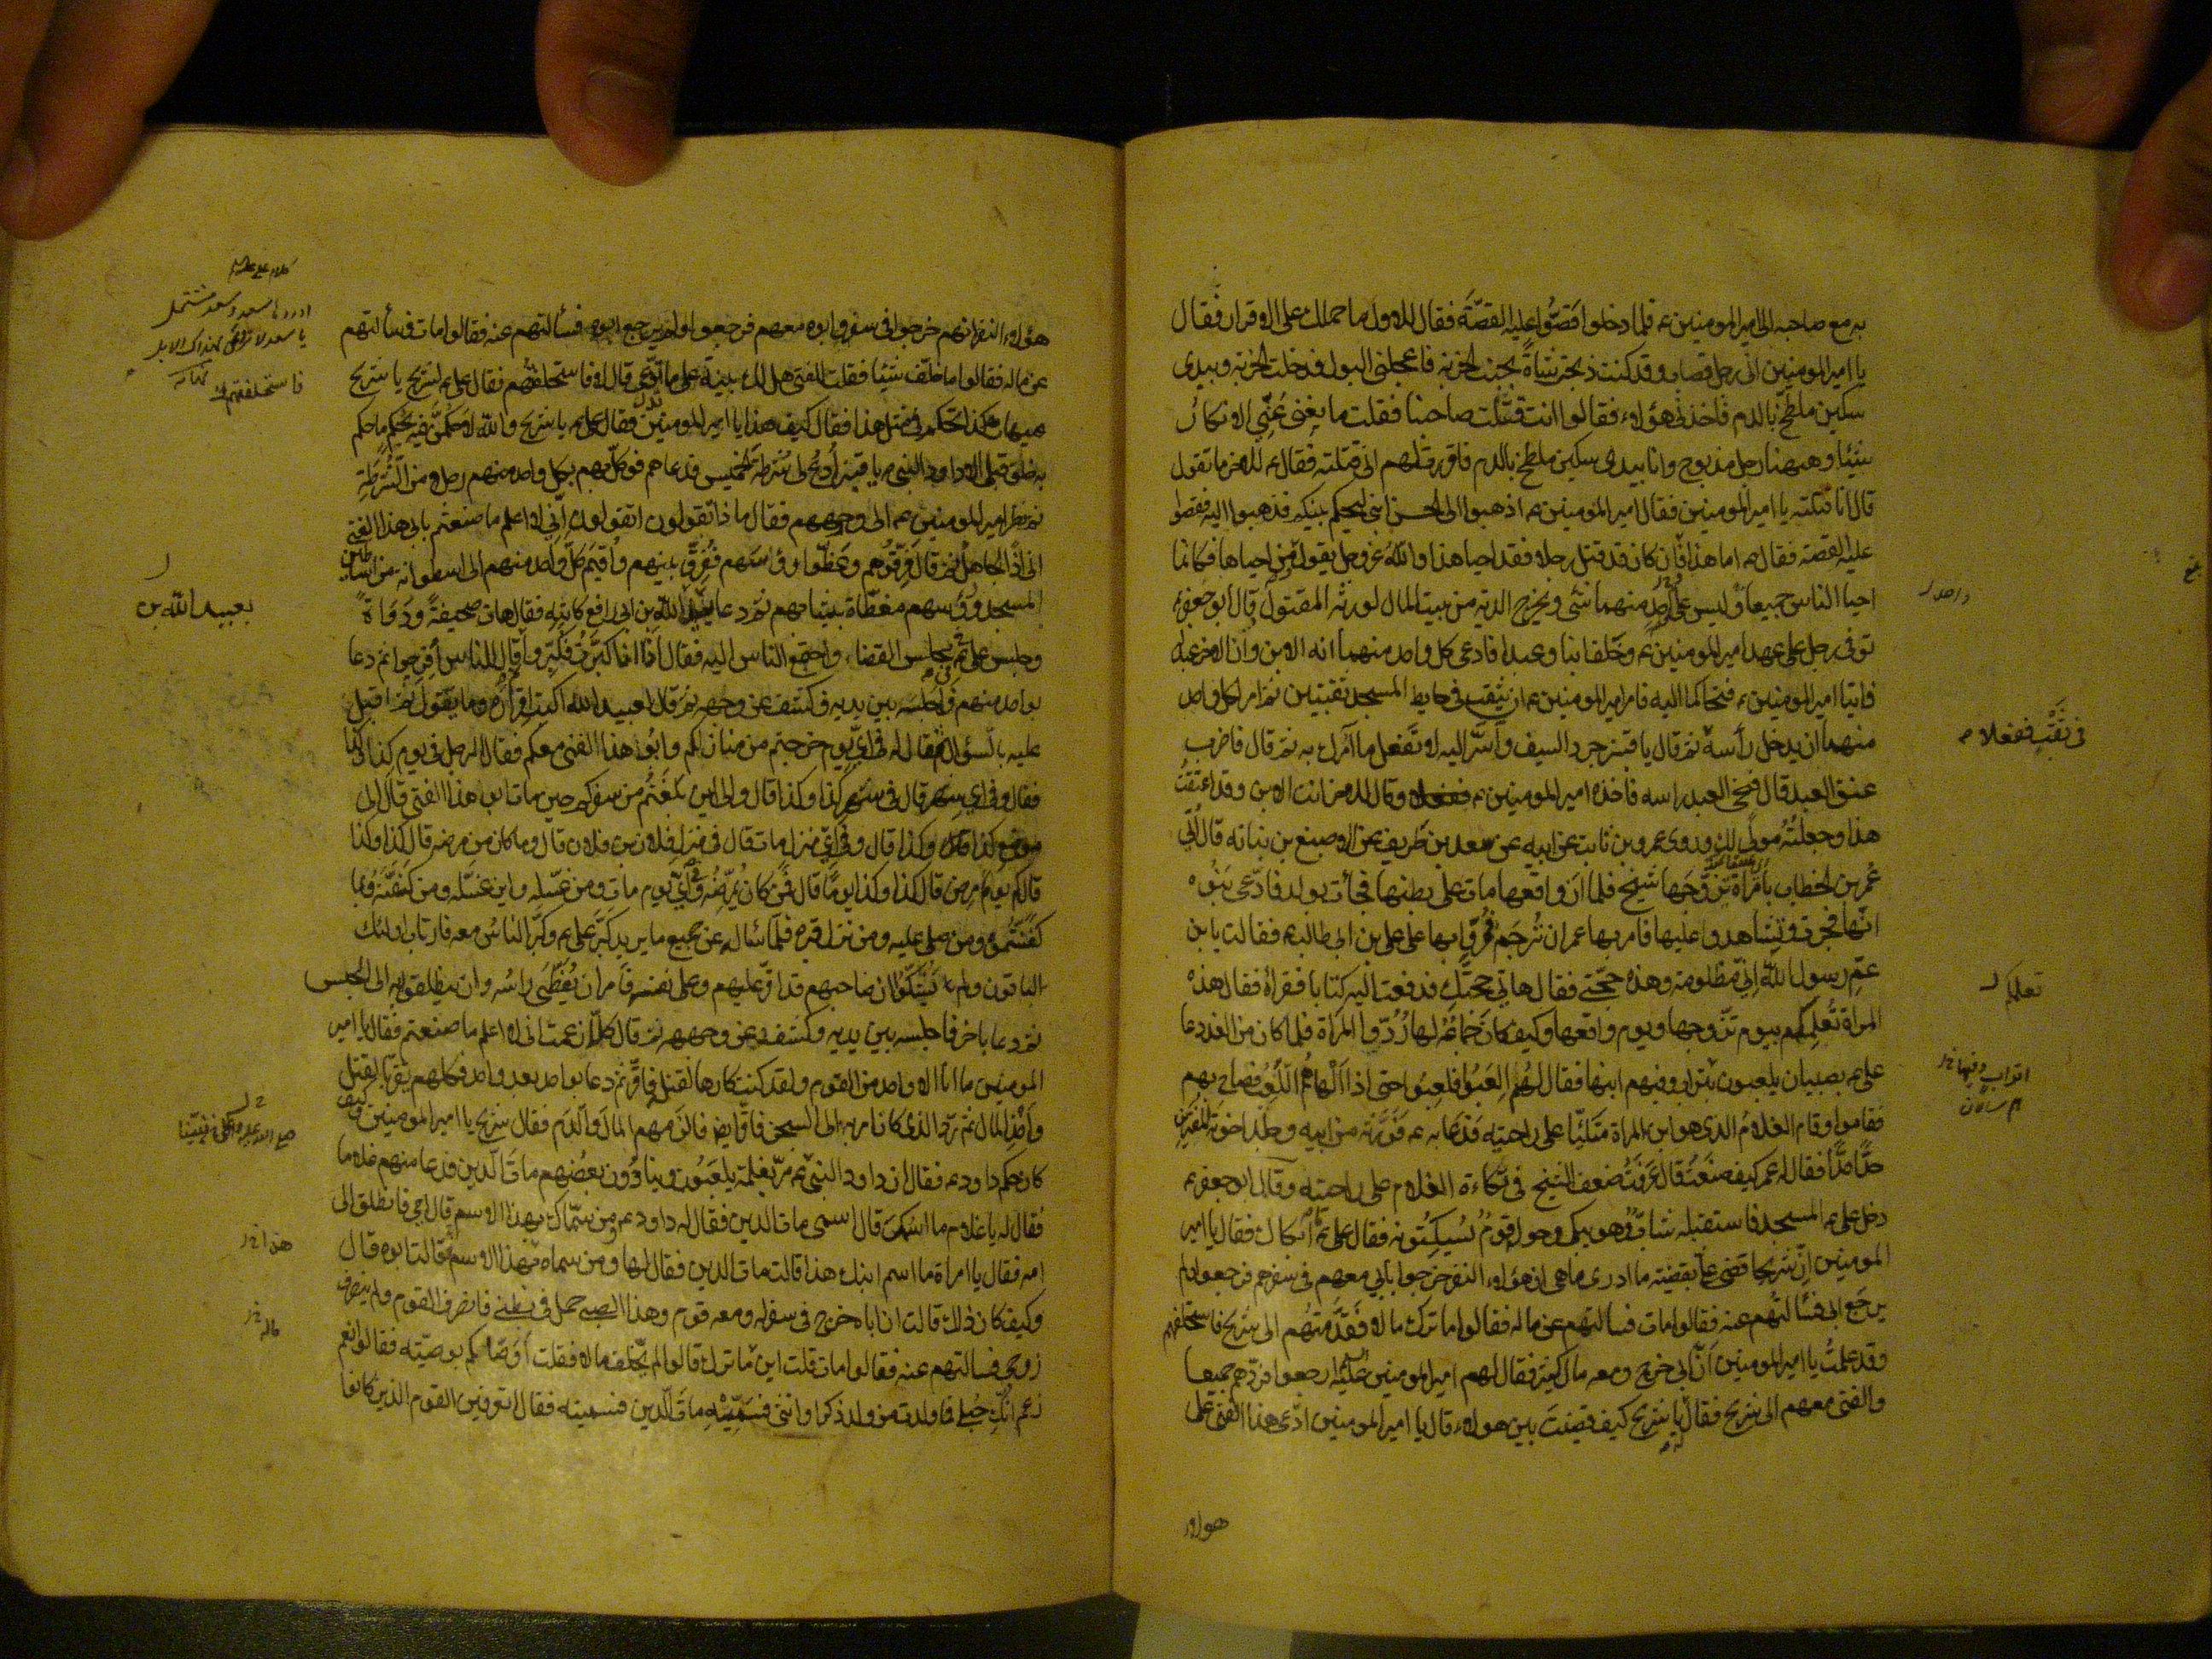 به مع صاحبه الى امير المومنين ع فلما دخلوا قصّوا عليه القصّة فقال للاول ما حملك على الاقرار فقال
يا امير المومنين انى رجل قصاب وقد كنت ذبحت شاة بجنب الخربة فاعجلنى البول فدخلت الخربة وبيدى
سكين ملطخ بالدم فاخذنى هؤلاء فقالوا انت قتلت صاحبنا فقلت ما يغنى عنّى الانكار
شيئا وههنا رجل مذبوح وانا بيدى سكين ملطخ بالدم فاقررت لهم انى قتلته فقال ع للاخر ما تقول
قال انا قتلته يا امير المومنين فقال امير المومنين ع اذهبوا الى الحسن ابنى ليحكم بينكم فذهبوا اليه فقصوا
عليه القصة فقال ع اما هذا فان كان قد قتل رجلا فقد احيا هذا والله عز وجل يقول ومن احياها فكانما
احيا الناس جميعا وليس على احد منهما شى ويخرج الدية من بيت المال لورثة المقتول قال ابو جعفر ع
توفى رجل على عهد امير المومنين ع وخلف ابنا وعبدا فادعى كل واحد منهما انه الابن وان الاخر عبد له
فاتيا امير المومنين ع فتحاكما اليه فامر امير المومنين ع ان يثقب فى حايط المسجد ثقبتين ثم امر كل واحد
منهما ان يدخل رأسه ثم قال يا قنبر جرد السيف واسرّ اليه لا تفعل ما آمرك به ثم قال اضرب
عنق العبد قال فنحى العبد راسه فاخذه امير المومنين ع وقال للاخر انت الابن وقد اعتقت
هذا وجعلته مولى لك وروى عمرو بن ثابت عن ابيه عن سعد بن طريف عن الاصبغ بن نباته قال اتى
عمر بن الخطاب بامرأة تزوّجها شيخ فلما ان واقعها مات على بطنها فجأت بولد فادّعى بنوه
انها فجرت وتشاهدوا عليها فامر بها عمر ان ترجم فمرّ بها على على بن ابى طالب ع فقالت يا بن
عم رسول الله انى مظلومة وهذه حجتى فقال هاتى حجتك فدفعت اليه كتابا فقرأه فقال هذه
المراة تعلمكم بيوم تزوجها ويوم واقعها وكيف كان جماعه لها ردّوا المراة فلما كان من الغد دعا
على ع بصبيان يلعبون اتراب وفيهم ابنها فقال لهم العبوا فلعبوا حتى اذا الهاهم اللعب فصاح بهم
فقاموا وقام الغلام الذى هو ابن المراة متكئا على راحتيه فدعا به ع فورثه من ابيه وجلد اخوته المفترين
حدّا حدّا فقال له عمر كيف صنعت قال عرفت ضعف الشيخ فى تكاءة الغلام على راحتيه وقال ابو جعفر ع
دخل على ع المسجد فاستقبله شابّ وهو يبكى وحوله قوم يسكتونه فقال على ع ما ابكاك فقال يا امير
المومنين ان شريحا قضى علىّ بقضية ما ادرى ما هى ان هؤلاء النفر خرجوا بابى معهم فى سفرهم فرجعوا ولم
يرجع ابى فسألتهم عنه فقالوا مات فسالتهم عن ماله فقالوا ما ترك مالا فقدّمتهم الى شريح فاستحلفهم
وقد علمت يا امير المومنين ان ابى خرج ومعه مال كثير فقال لهم امير المومنين ارجعوا فردّهم جميعا
والفتى معهم الى شريح فقال يا شريح كيف قضيت بين هولاء قال يا امير المومنين ادّعى هذا الفتى على
هولاء
واحد
فى ثقب ففعلا
تعلمكم
اتراب وفيها
هؤلاء النفر انهم خرجوا فى سفر وابوه معهم فرجعوا ولم يرجع ابوه فسألتهم عنه فقالوا مات فسألتهم
عن ماله فقالوا ما خلّف شيئا فقلت للفتى هل لك بينة على ما تدّعى قال لا فاستحلفتهم فقال على ع لشريح يا شريح
هيهات هكذا تحكم فى مثل هذا فقال كيف هذا يا امير المومنين فقال على ع يا شريح والله لاحكمنّ فيه بحكم ما حكم
به خلق قبلى الا داود النبى ع يا قنبر ادع لى شرطة الخميس فدعاهم فوكل بهم بكل واحد منهم رجلا من الشرطة
ثم نظر امير المومنين ع الى وجوههم فقال ما ذا تقولون اتقولون انى لا اعلم ما صنعتم بابى هذا الفتى
انى اذا لجاهل ثم قال فرّقوهم وغطّوا رؤسهم ففرق بينهم واقيم كل واحد منهم الى اسطوانة من اساطين
المسجد ورؤسهم مغطّاة بثيابهم ثم دعا الله بن ابى رافع كاتبه فقال هات صحيفة ودواة
وجلس على ع فى مجلس القضاء واجتمع الناس اليه فقال اذا انا كبّرت فكبّروا وقال للناس افرجوا ثم دعا
بواحد منهم فاجلسه بين يديه فكشف عن وجهه ثم قال لعبيد الله اكتب اقراره وما يقول ثم اقبل
عليه بالسؤال ثم قال له فى اىّ يوم خرجتم من منازلكم وابو هذا الفتى معكم فقال الرجل فى يوم كذا وكذا
فقال وفى اى شهر قال فى شهر كذا وكذا قال والى اين بلغتم من سفركم حين مات ابو هذا الفتى قال الى
موضع كذا وكذا قال وفى اىّ منزل مات قال فى منزل فلان بن فلان قال وما كان من مرضه قال كذا وكذا
قال كم يوم مرض قال كذا وكذا يوما قال فمن كان يمرّضه وفى اىّ يوم مات ومن غسّله واين غسّله ومن كفّنه وبما
كفّنتموه ومن صلى عليه ومن نزل قبره فلما سأله عن جميع ما يريد كبّر على ع وكبّر الناس معه فارتاب اولئك
الباقون ولم يشكّوا ان صاحبهم قد اقرّ عليهم وعلى نفسه فامر ان يغطّى راسه وان ينطلقوا به الى الحبس
ثم دعا باخر فاجلسه بين يديه وكشف عن وجهه ثم قال كلّا زعمت انى لا اعلم ما صنعتم فقال يا امير
المومنين ما انا الا واحد من القوم ولقد كنت كارها لقتله فاقرّ ثم دعا بواحد بعد واحد فكلهم يقرّ بالقتل
واخذ المال ثم ردّ الذى كان امر به الى السجن فاقرّ ايضا فالزمهم المال والدم فقال شريح يا امير المومنين وكيف
كان حكم داود ع فقال ان داود النبى ع مرّ بغلمة يلعبون وينادون بعضهم مات الدين فدعا منهم غلاما
فقال له يا غلام ما اسمك قال اسمى مات الدين فقال له داود ع من سمّاك بهذا الاسم قال امى فانطلق الى
امه فقال يا امراة ما اسم ابنك هذا قالت مات الدين فقال لها ومن سماه بهذا الاسم قالت ابوه قال
وكيف كان ذلك قالت ان اباه خرج فى سفر له ومعه قوم وهذا الصبى حمل فى بطنى فانصرف القوم ولم ينصرف
زوجى فسالتهم عنه فقالوا مات قلت اين ما ترك قالوا لم يخلف مالا فقلت أوصّاكم بوصيّته فقالوا نعم
زعم انك حبلى فما ولدت من ولد ذكر او انثى فسمّيه مات الدين فسميته فقال اتعرفين القوم الذين كانوا
بعبيد الله بن
هذا